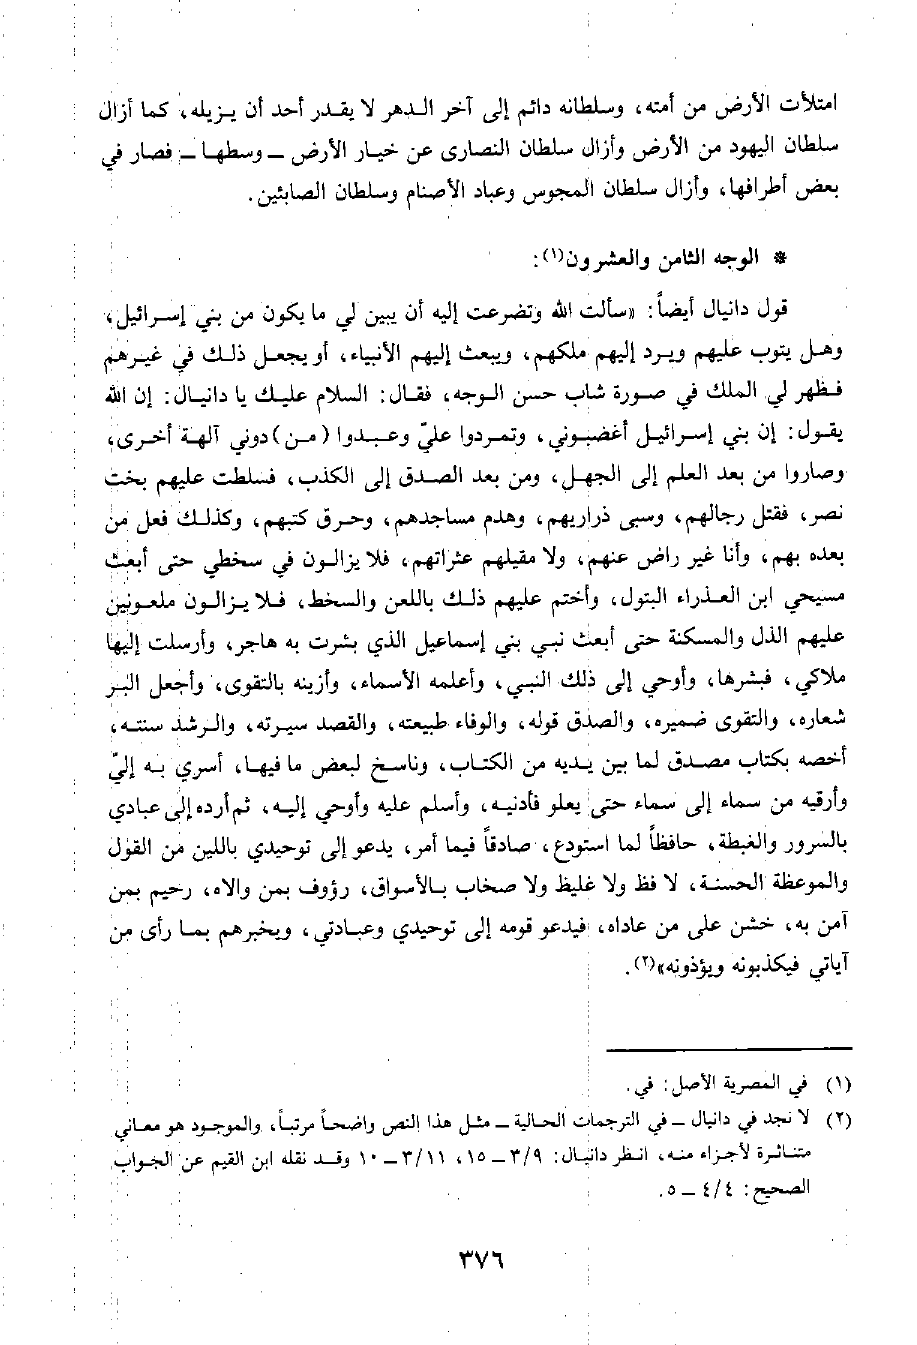 امتلأت الأرض من أمته، وسلطانه دائم إلى آخر الدهر لا يقدر أحد أن يزيله، كما أزال
سلطان اليهود من الأرض وأزال سلطان النصارى عن خيار الأرض ــ وسطها ــ فصار في
بعض أطرافها، وأزال سلطان المجوس وعباد الأصنام وسلطان الصابئين.
* الوجه الثامن والعشرون(١):
قول دانيال أيضاً: «سألت الله وتضرعت إليه أن يبين لي ما يكون من بني إسرائيل،
وهل يتوب عليهم ويرد إليهم ملكهم، ويبعث إليهم الأنبياء، أو يجعل ذلك في غيرهم
فظهر لي الملك في صورة شاب حسن الوجه، فقال: السلام عليك يا دانيال: إن الله
يقول: إن بني إسرائيل أغضبوني، وتمردوا عليّ وعبدوا (من) دوني آلهة أخرى،
وصاروا من بعد العلم إلى الجهل، ومن بعد الصدق إلى الكذب، فسلطت عليهم بخت
نصر، فقتل رجالهم، وسبى ذراريهم، وهدم مساجدهم، وحرق كتبهم، وكذلك فعل من
بعده بهم، وأنا غير راض عنهم، ولا مقيلهم عثراتهم، فلا يزالون في سخطي حتى أبعث
مسيحي ابن العذراء البتول، وأختم عليهم ذلك باللعن والسخط، فلا يزالون ملعونين
عليهم الذل والمسكنة حتى أبعث نبي بني إسماعيل الذي بشرت به هاجر، وأرسلت إليها
ملاكي، فبشرها، وأوحي إلى ذلك النبي، وأعلمه الأسماء، وأزينه بالتقوى، وأجعل البر
شعاره، والتقوى ضميره، والصدق قوله، والوفاء طبيعته، والقصد سيرته، والرشد سنته،
أخصه بكتاب مصدق لما بين يديه من الكتاب، وناسخ لبعض ما فيها، أسري به إليّ
وأرقيه من سماء إلى سماء حتى يعلو فأدنيه، وأسلم عليه وأوحي إليه، ثم أرده إلى عبادي
بالسرور والغبطة، حافظاً لما استودع، صادقاً فيما أمر، يدعو إلى توحيدي باللين من القول
والموعظة الحسنة، لا فظ ولا غليظ ولا صخاب بالأسواق، رؤوف بمن والاه، رحيم بمن
آمن به، خشن على من عاداه، فيدعو قومه إلى توحيدي وعبادتي، ويخبرهم بما رأى من
آياتي فيكذبونه ويؤذونه»(٢).
(١) في المصرية الأصل: في.
(٢) لا نجد في دانيال ــ في الترجمات الحالية ــ مثل هذا النص واضحاً مرتباً، والموجود هو معاني
متناثرة لأجزاء منه، انظر دانيال: ٣/٩ ــ ١٥، ٣/١١ ــ ١٠ وقد نقله ابن القيم عن الجواب
الصحيح: ٤/٤ ــ ٥.
٣٧٦